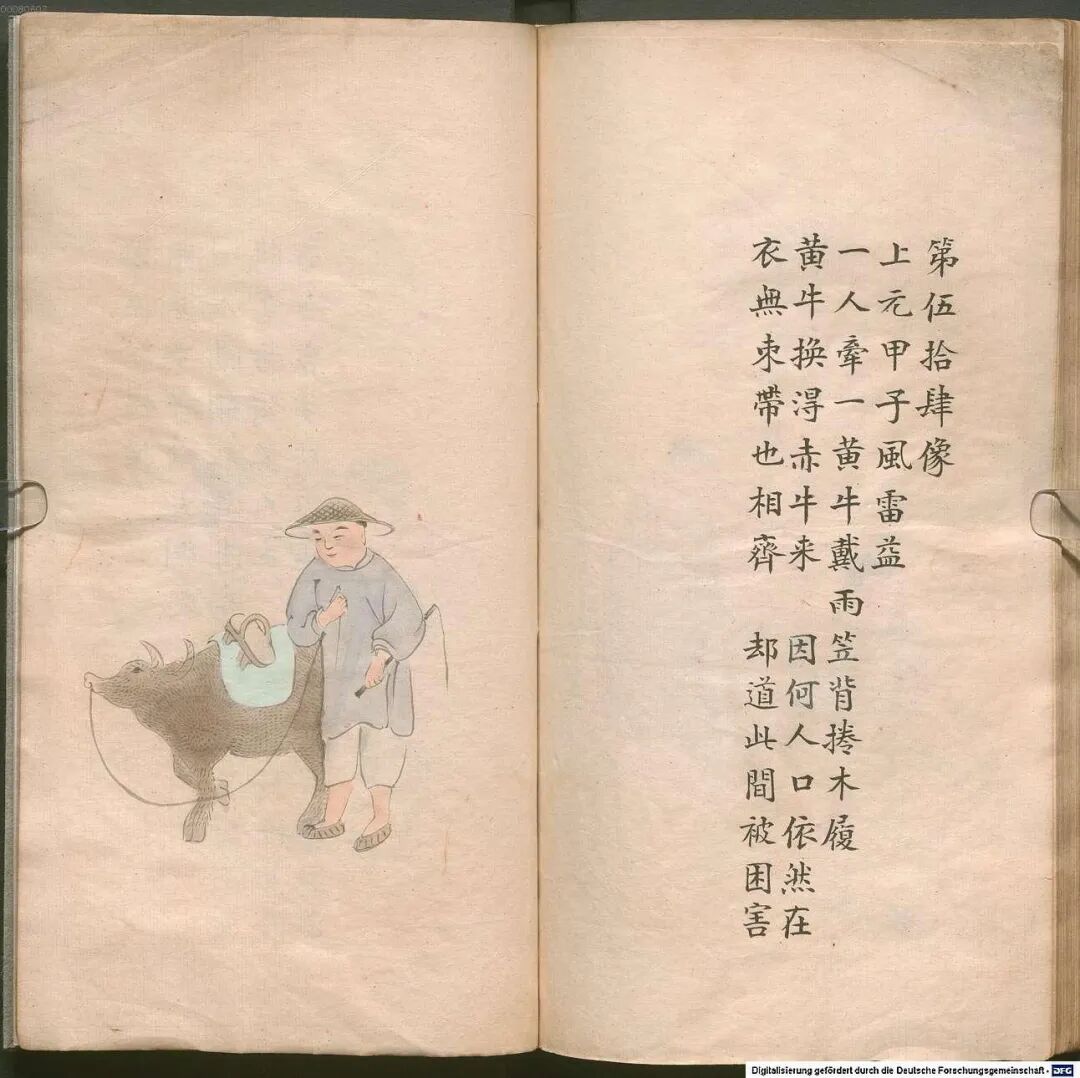 第伍拾肆像
上元甲子風雷益
一人牽一黄牛戴雨笠背捲木履
黄牛换得赤牛来 因何人口依然在
衣無束帶也相齊 却道此間被困害
Digitalisierung gefördert durch die Deutsche Forschungsgemeinschaft - DFG